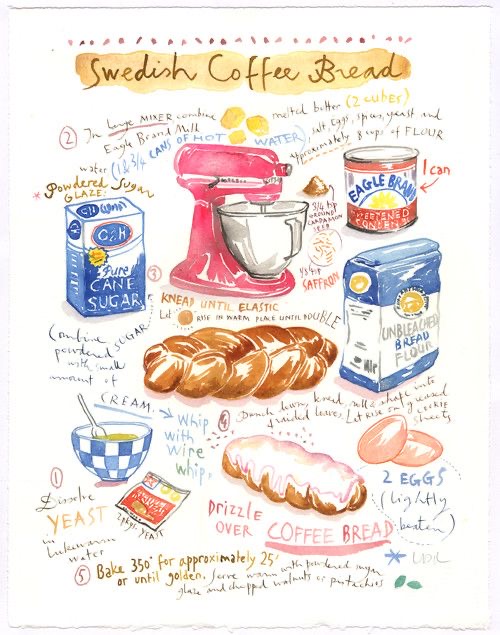 Swedish Coffee Bread
② In large MIXER combine
Eagle Brand Milk
water (1&3/4 CANS OF HOT WATER)
melted butter (2 cubes)
salt, eggs, spices, yeast and
approximately 8 cups of FLOUR
1 can
EAGLE BRAND
SWEETENED
CONDENSED
3/4 tsp
GROUND
CARDAMON
SEED
SAFFRON
* Powdered Sugar
GLAZE:
C&H
C&H
Pure
CANE
SUGAR
③ KNEAD UNTIL ELASTIC
Let RISE IN WARM PLACE UNTIL DOUBLE
UNBLEACHED
BREAD
FLOUR
Combine
powdered SUGAR
with small
amount of
CREAM.
Whip
with
wire
whip.
④ Punch down, knead, roll & shape into
braided loaves. Let rise on greased cookie
sheets
① Dissolve
YEAST
in
lukewarm
water
2 pkgs. YEAST
2 EGGS
(lightly
beaten)
Drizzle
OVER COFFEE BREAD
⑤ Bake 350° for approximately 25'
or until golden. Serve warm with powdered sugar
glaze and chopped walnuts or pistachios